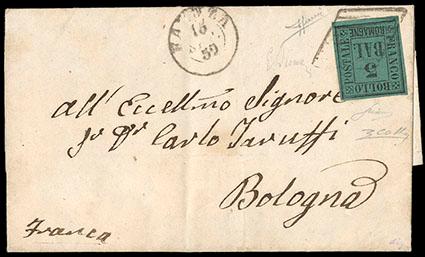 FAENZA
15
59
FRANCO
BOLLO
POSTALE
ROMAGNE
BAJ
5
all'Eccellmo Signore
Carlo Taruffi
Bologna
Franca